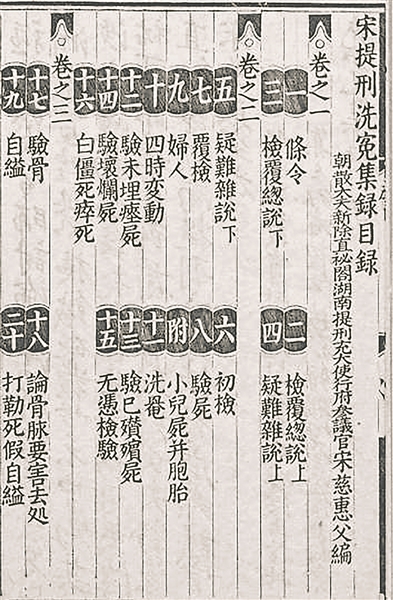 宋提刑洗冤集録目録
朝散大夫新除直祕閣湖南提刑充大使行府參議官宋慈惠父編
卷之一
一 條令 二 檢覆緫説上
三 檢覆緫説下 四 疑難雜説上
卷之二
五 疑難雜説下 六 初檢
七 覆檢 八 驗屍
九 婦人 附 小兒屍并胞胎
十 四時変動 十一 洗罨
十二 驗未埋瘞屍 十三 驗已殯殮屍
十四 驗壞爛屍 十五 无憑檢驗
十六 白僵死瘁死
卷之三
十七 驗骨 十八 論骨脉要害去処
十九 自縊 二十 打勒死假自縊